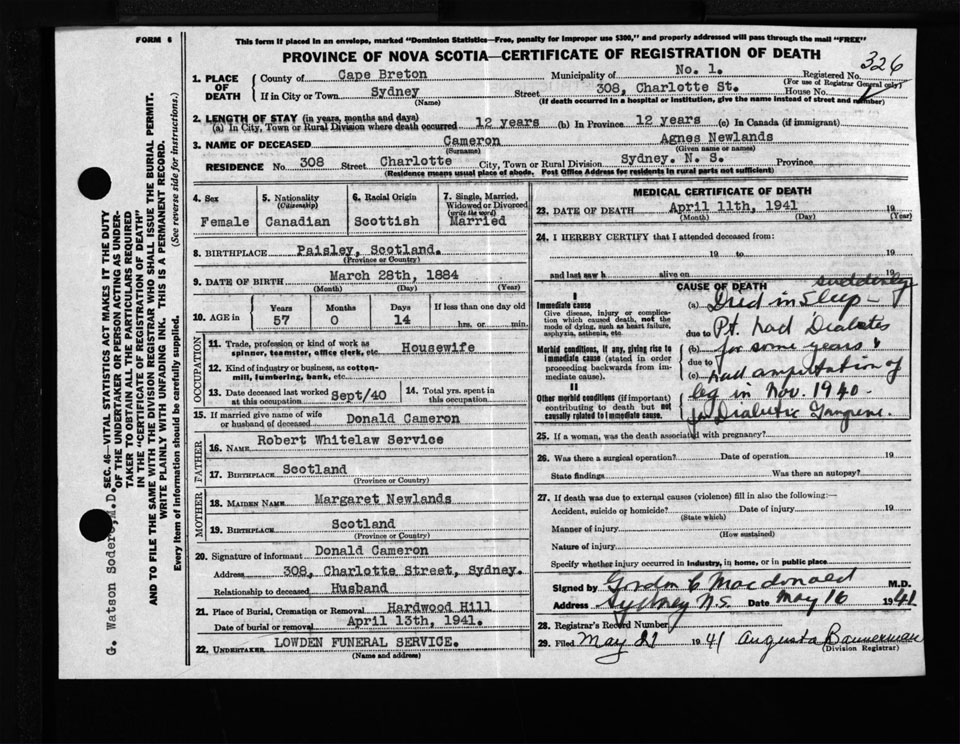 FORM 6
This form if placed in an envelope, marked "Dominion Statistics—Free, penalty for improper use $300," and properly addressed will pass through the mail "FREE"
PROVINCE OF NOVA SCOTIA—CERTIFICATE OF REGISTRATION OF DEATH
326
1. PLACE OF DEATH
County of Cape Breton Municipality of No. 1. Registered No.
(For use of Registrar General only)
If in City or Town Sydney Street 308, Charlotte St. House No.
(Name) (If death occurred in a hospital or institution, give the name instead of street and number)
2. LENGTH OF STAY (in years, months and days)
(a) In City, Town or Rural Division where death occurred 12 years (b) In Province 12 years (c) In Canada (if immigrant)
3. NAME OF DECEASED Cameron Agnes Newlands
(Surname) (Given name or names)
RESIDENCE No. 308 Street Charlotte City, Town or Rural Division Sydney. N. S. Province
(Residence means usual place of abode. Post Office Address for residents in rural parts not sufficient)
4. Sex
Female
5. Nationality
(Citizenship)
Canadian
6. Racial Origin
Scottish
7. Single, Married, Widowed or Divorced
(write the word)
Married
8. BIRTHPLACE Paisley, Scotland.
(Province or Country)
9. DATE OF BIRTH March 28th, 1884
(Month) (Day) (Year)
10. AGE in
Years Months Days If less than one day old
57 0 14 hrs. or min.
OCCUPATION
11. Trade, profession or kind of work as spinner, teamster, office clerk, etc. Housewife
12. Kind of industry or business, as cotton-mill, lumbering, bank, etc.
13. Date deceased last worked at this occupation Sept/40
14. Total yrs. spent in this occupation
15. If married give name of wife or husband of deceased Donald Cameron
FATHER
16. NAME Robert Whitelaw Service
17. BIRTHPLACE Scotland
(Province or Country)
MOTHER
18. MAIDEN NAME Margaret Newlands
19. BIRTHPLACE Scotland
(Province or Country)
20. Signature of informant Donald Cameron
Address 308, Charlotte Street, Sydney.
Relationship to deceased Husband
21. Place of Burial, Cremation or Removal Hardwood Hill
Date of burial or removal April 13th, 1941.
22. UNDERTAKER LOWDEN FUNERAL SERVICE.
(Name and address)
MEDICAL CERTIFICATE OF DEATH
23. DATE OF DEATH April 11th, 1941 19
(Month) (Day) (Year)
24. I HEREBY CERTIFY that I attended deceased from:
19 to 19
and last saw h alive on 19
CAUSE OF DEATH
I
Immediate cause
Give disease, injury or complication which caused death, not the mode of dying, such as heart failure, asphyxia, asthenia, etc.
Morbid conditions, if any, giving rise to immediate cause (stated in order proceeding backwards from immediate cause).
II
Other morbid conditions (if important) contributing to death but not causally related to immediate cause.
suddenly
(a) Died in Sleep -
due to Pt. had Diabetes
(b) for some years &
due to
(c) had amputation of
leg in Nov. 1940 -
for Diabetic Gangrene.
25. If a woman, was the death associated with pregnancy?
26. Was there a surgical operation? Date of operation 19
State findings Was there an autopsy?
27. If death was due to external causes (violence) fill in also the following:—
Accident, suicide or homicide? Date of injury 19
(State which)
Manner of injury
(How sustained)
Nature of injury
Specify whether injury occurred in industry, in home, or in public place
Signed by Gordon C Macdonald M.D.
Address Sydney N.S. Date May 16 1941
28. Registrar's Record Number
29. Filed May 21 1941 Augusta Bannerman
(Division Registrar)
SEC. 46—VITAL STATISTICS ACT MAKES IT THE DUTY
OF THE UNDERTAKER OR PERSON ACTING AS UNDER-
TAKER TO OBTAIN ALL THE PARTICULARS REQUIRED
IN THE "CERTIFICATE OF REGISTRATION OF DEATH"
AND TO FILE THE SAME WITH THE DIVISION REGISTRAR WHO SHALL ISSUE THE BURIAL PERMIT.
WRITE PLAINLY WITH UNFADING INK. THIS IS A PERMANENT RECORD.
Every item of information should be carefully supplied. (See reverse side for instructions.)
G. Watson Sodero, M.D.